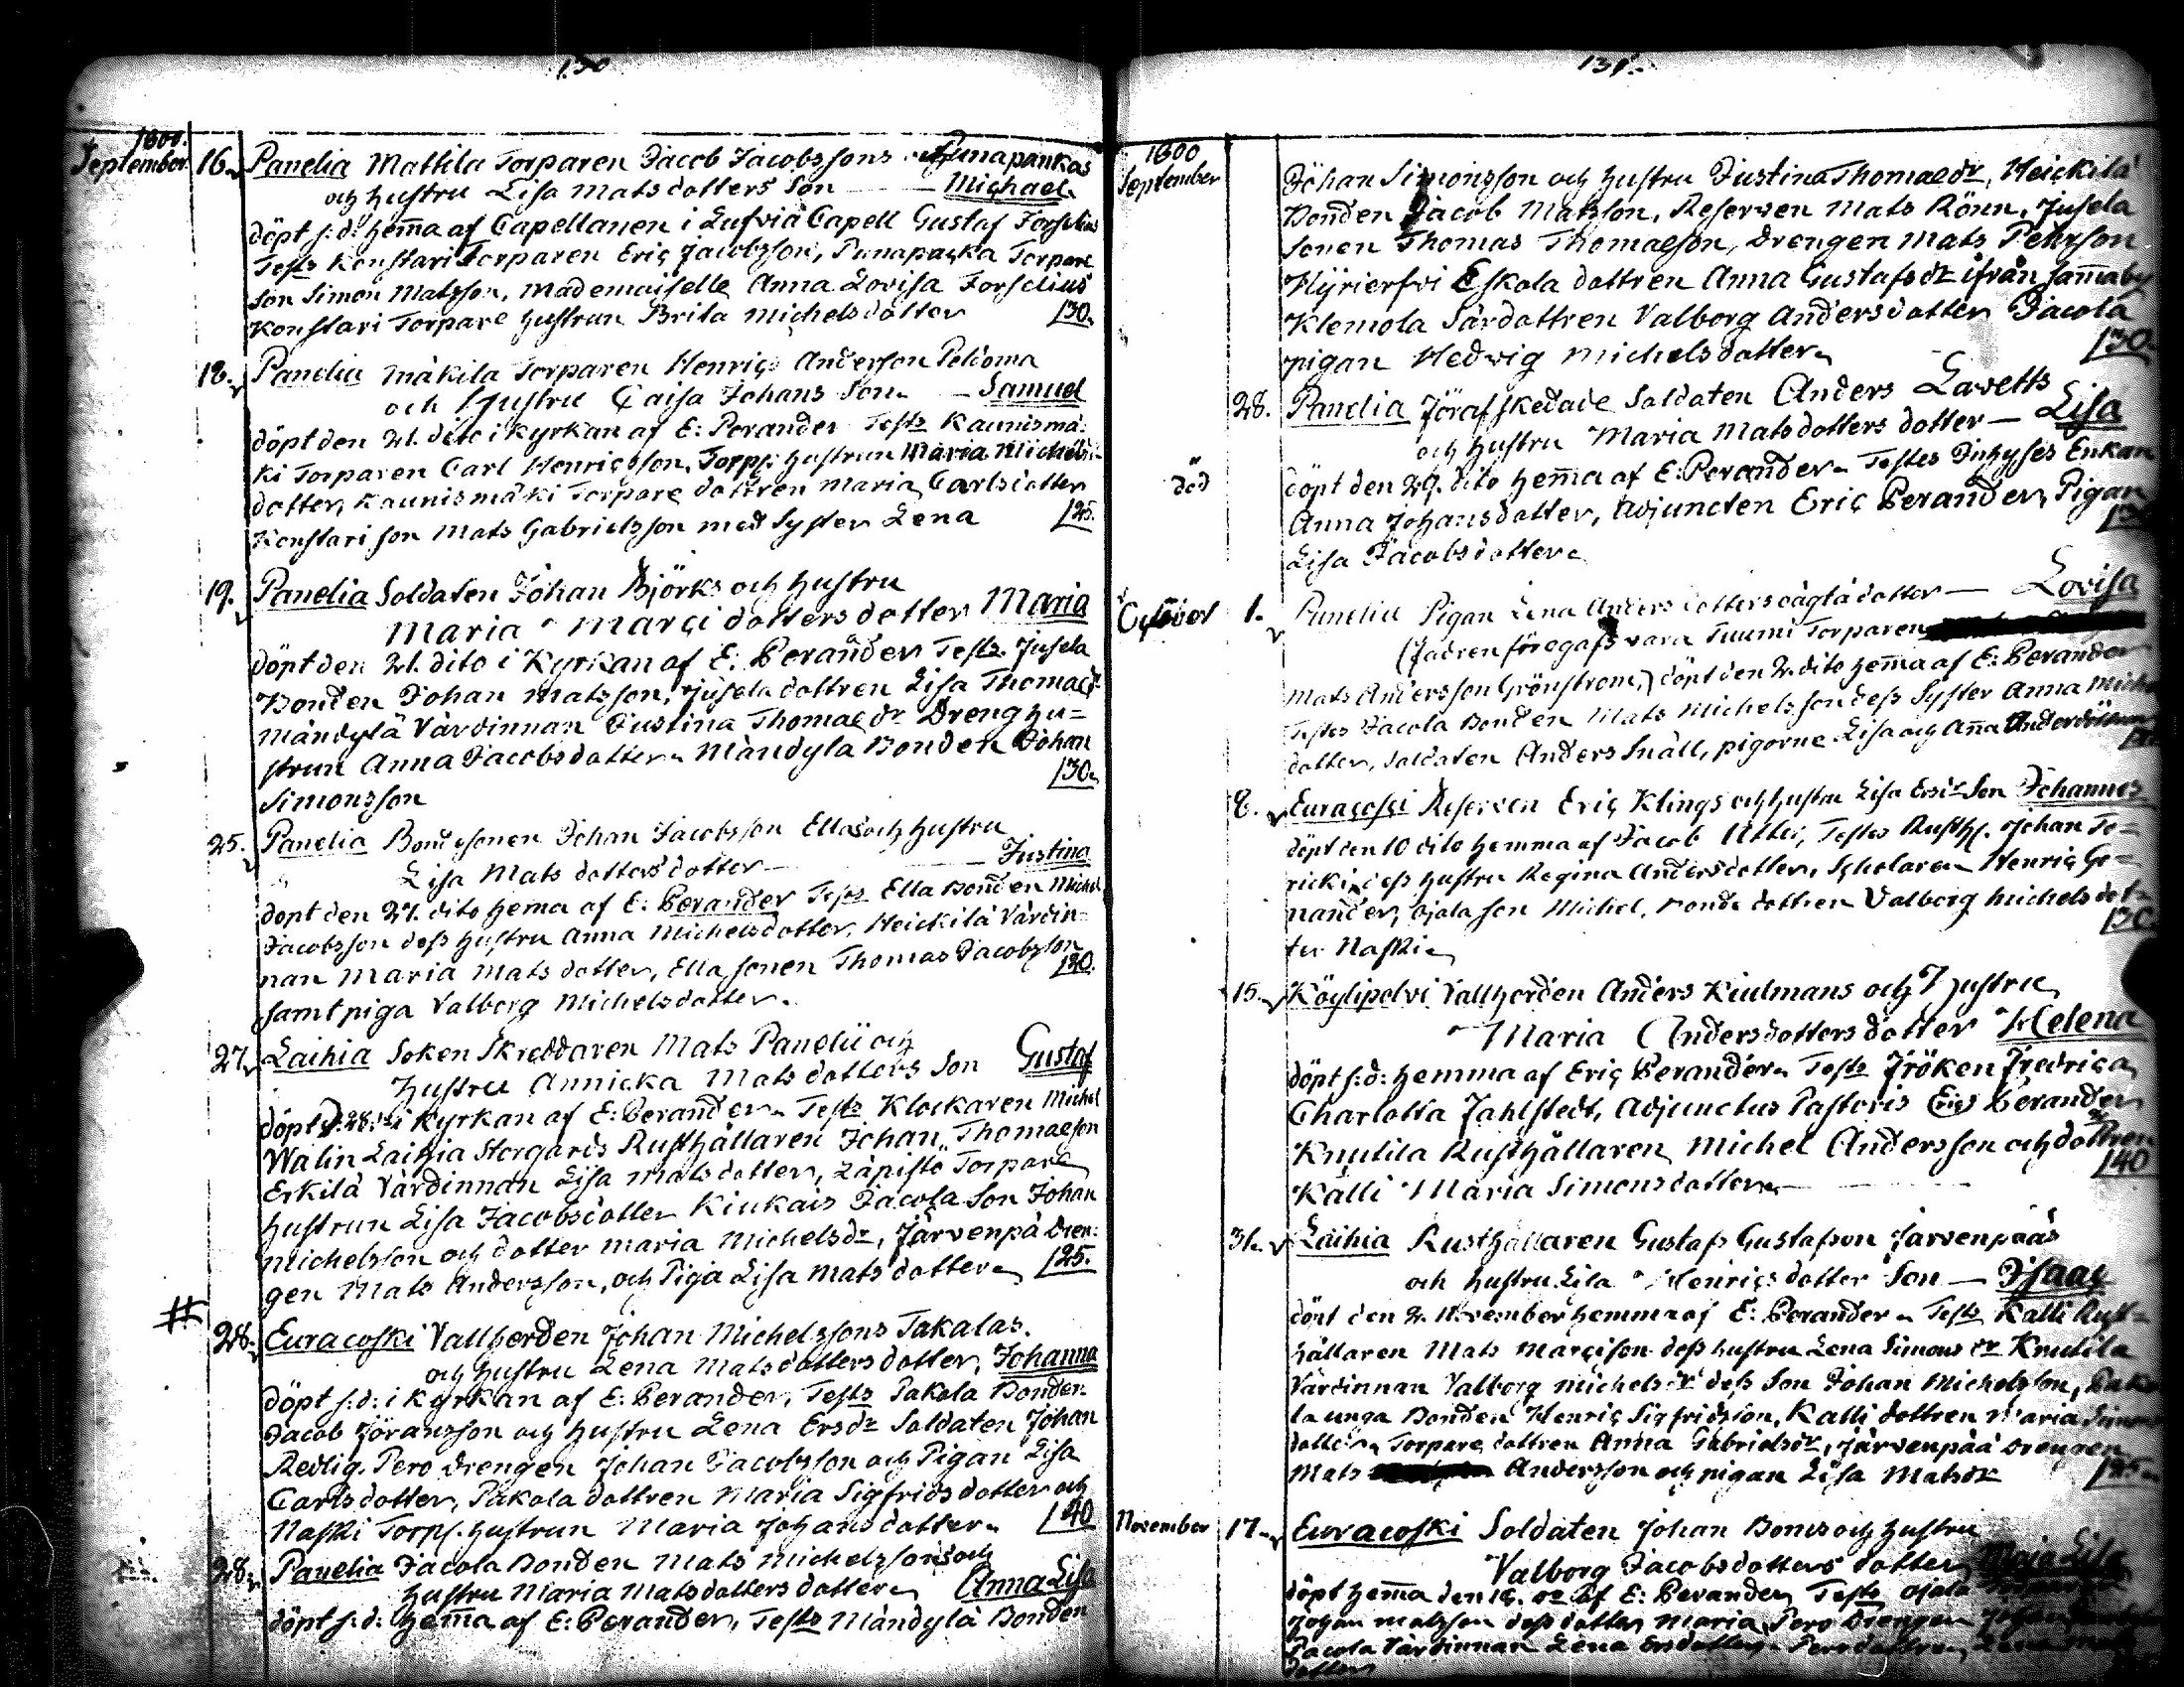 130
1800.
September. 16. Panelia Mattila Torparen Jacob Jacobssons Punapankas
och hustru Lisa Matsdotters Son — Michael
döpt s:d: hem̄a af Capellanen i Lufvia Capell Gustaf Forselius
Tests Konstari Torparen Eric Jacobsson, Punapacka Torpare
Son Simon Matsson, Mademaiselle Anna Lovisa Forselius
Konstari Torpare hustrun Brita Michelsdotter /30.
18. Panelia Mäkilä Torparen Henrics Andersson Peldoma
och Hustru Caisa Johans Son — Samuel
döpt den 21. dito i Kyrkan af E: Perander Tests Kaunismä-
ki Torparen Carl Henricsson, Torpp: hustrun Maria Michels
dotter, Kaunismäki Torpare dottren Maria Carlsdotter
Konstari son Mats Gabrielsson med Syster Lena /25.
19. Panelia Soldaten Johan Björks och hustru
Maria Marci dotters dotter Maria
döpt den 21. dito i Kyrkan af E: Perander Tests. Jusela
Bonden Johan Matsson, Jusela dottren Lisa Thomaedr
Mändylä Värdinnan Justina Thomaedr Dreng hu=
strun Anna Jacobsdotter. Mändylä Bonden Johan
Simonsson /30.
25. Panelia Bondesonen Johan Jacobsson Ella och hustru
Lisa Mats dotters dotter — Justina
döpt den 27. dito hem̄a af E: Perander Tests Ella Bonden Michel
Jacobsson dess hustru Anna Michelsdotter, Heickilä Värdin-
nan Maria Matsdotter, Ella sonen Thomas Jacobsson
samt piga Valborg Michelsdotter. /30.
27. Laihia Soken Skreddaren Mats Panelii och
hustru Annicka Matsdotters Son Gustaf
döpt d: 28: i Kyrkan af E: Perander. Tests Klockaren Michel
Walin Laihia Storgards Rusthållaren Johan Thomaeson
Erkilä Värdinnan Lisa Matsdotter, Läpistö Torpare
hustrun Lisa Jacobsdotter Kiukais Jacola Son Johan
Michelsson och dotter Maria Michelsdr, Järvenpä Dren:
gen Mats Andersson, och Piga Lisa Matsdotter. /25.
28. Euracoski Vallherden Johan Michelssons Takalas.
och hustru Lena Matsdotters dotter, Johanna
döpt s:d: i Kyrkan af E: Perander, Tests Pakola Bonden
Jacob Jöransson och hustru Lena Ersdr Soldaten Johan
Redlig. Pero Drengen Johan Jacobsson och Pigan Lisa
Carlsdotter, Pakola dottren Maria Sigfridsdotter och
Naski Torps. hustrun Maria Johansdotter. /40
28. Panelia Jacola Bonden Mats Michelssons och
hustru Maria Matsdotters dotter. Anna Lisa
döpt s:d: hem̄a af E: Perander, Tests Mändylä Bonden
131.
1800
September
Johan Simonsson och hustru Justina Thomaedr, Heickilä
Bonden Jacob Matsson, Reserven Mats Rönn, Jusela
Sonen Thomas Thomaeson, Drengen Mats Pehrson
Hijrierfvi Eskola dottren Anna Gustafsdr ifrån sam̄a by
Klemola Sardottren Valborg Andersdotter Jacola
pigan Hedvig Michelsdotter. /30.
28. Panelia Jöraf skedade Soldaten Anders Lavetts
och hustru Maria Matsdotters dotter — Lisa
död döpt den 29. dito hem̄a af E: Perander. Testes Enkan
Anna Johansdotter, Adjuncten Eric Perander, Pigan
Lisa Jacobsdotter.
October 1. Panelia Pigan Lena Anders dotters oägta dotter — Lovisa
(Fadren föregafs vara Tuumi Torparen
Mats Andersson Grönstrom,) döpt den 2. dito hem̄a af E: Perander
Testes Jacola Bonden Mats Michelsson dess Syster Anna Michels
dotter, Soldaten Anders Snäll, pigorne Lisa och An̄a
8. Euracoski Reserven Eric Klings och hustru Lisa Ersdr Son Johannes
döpt den 10 dito hemma af Jacob Utter, Testes Rusth. Johan To=
ricki, dess hustru Regina Andersdotter, Scholaren Henric Ge=
nander, Ojala son Michel, Bonde dottren Valborg Michelsdot-
ter Naski. /30.
15. Köylipolvi Vallherden Anders Kiulmans och Hustru
Maria Andersdotters dotter Helena
döpt s:d: hemma af Eric Perander. Tests Fröken Fredrica
Charlotta Fahlstedt, Adjunctus Pastoris Eric Perander
Knutila Rusthållaren Michel Andersson och dottren
Kalli Maria Simonsdotter. /40
31. Laihia Rusthållaren Gustaf Gustafson Järvenpääs
och hustru Lisa Henrics dotter Son — Isaac
döpt den 2. November hemma af E: Perander. Tests Kalli Rust-
hållaren Mats Marcison dess hustru Lena Simonsdr Knutila
Värdinnan Valborg Michelsdr dess Son Johan Michelsson, Pako
la unga Bonden Henric Sigfridsson, Kalli dottren Maria Simons
dotter. Torpare dottren Anna Gabrielsdr, Järvenpää Drengen
Mats Andersson och pigan Lisa Matsdr /25.
November 17. Euracoski Soldaten Johan Boms och hustru
Valborg Jacobsdotters dotter Maja Lisa
döpt hem̄a den 18. do af E: Perander Tests Ojala
Johan Matsson dess dotter Maria, Pero Drengen
Jacola Värdinnan Lena Ersdotter, Pero dottren
dotter